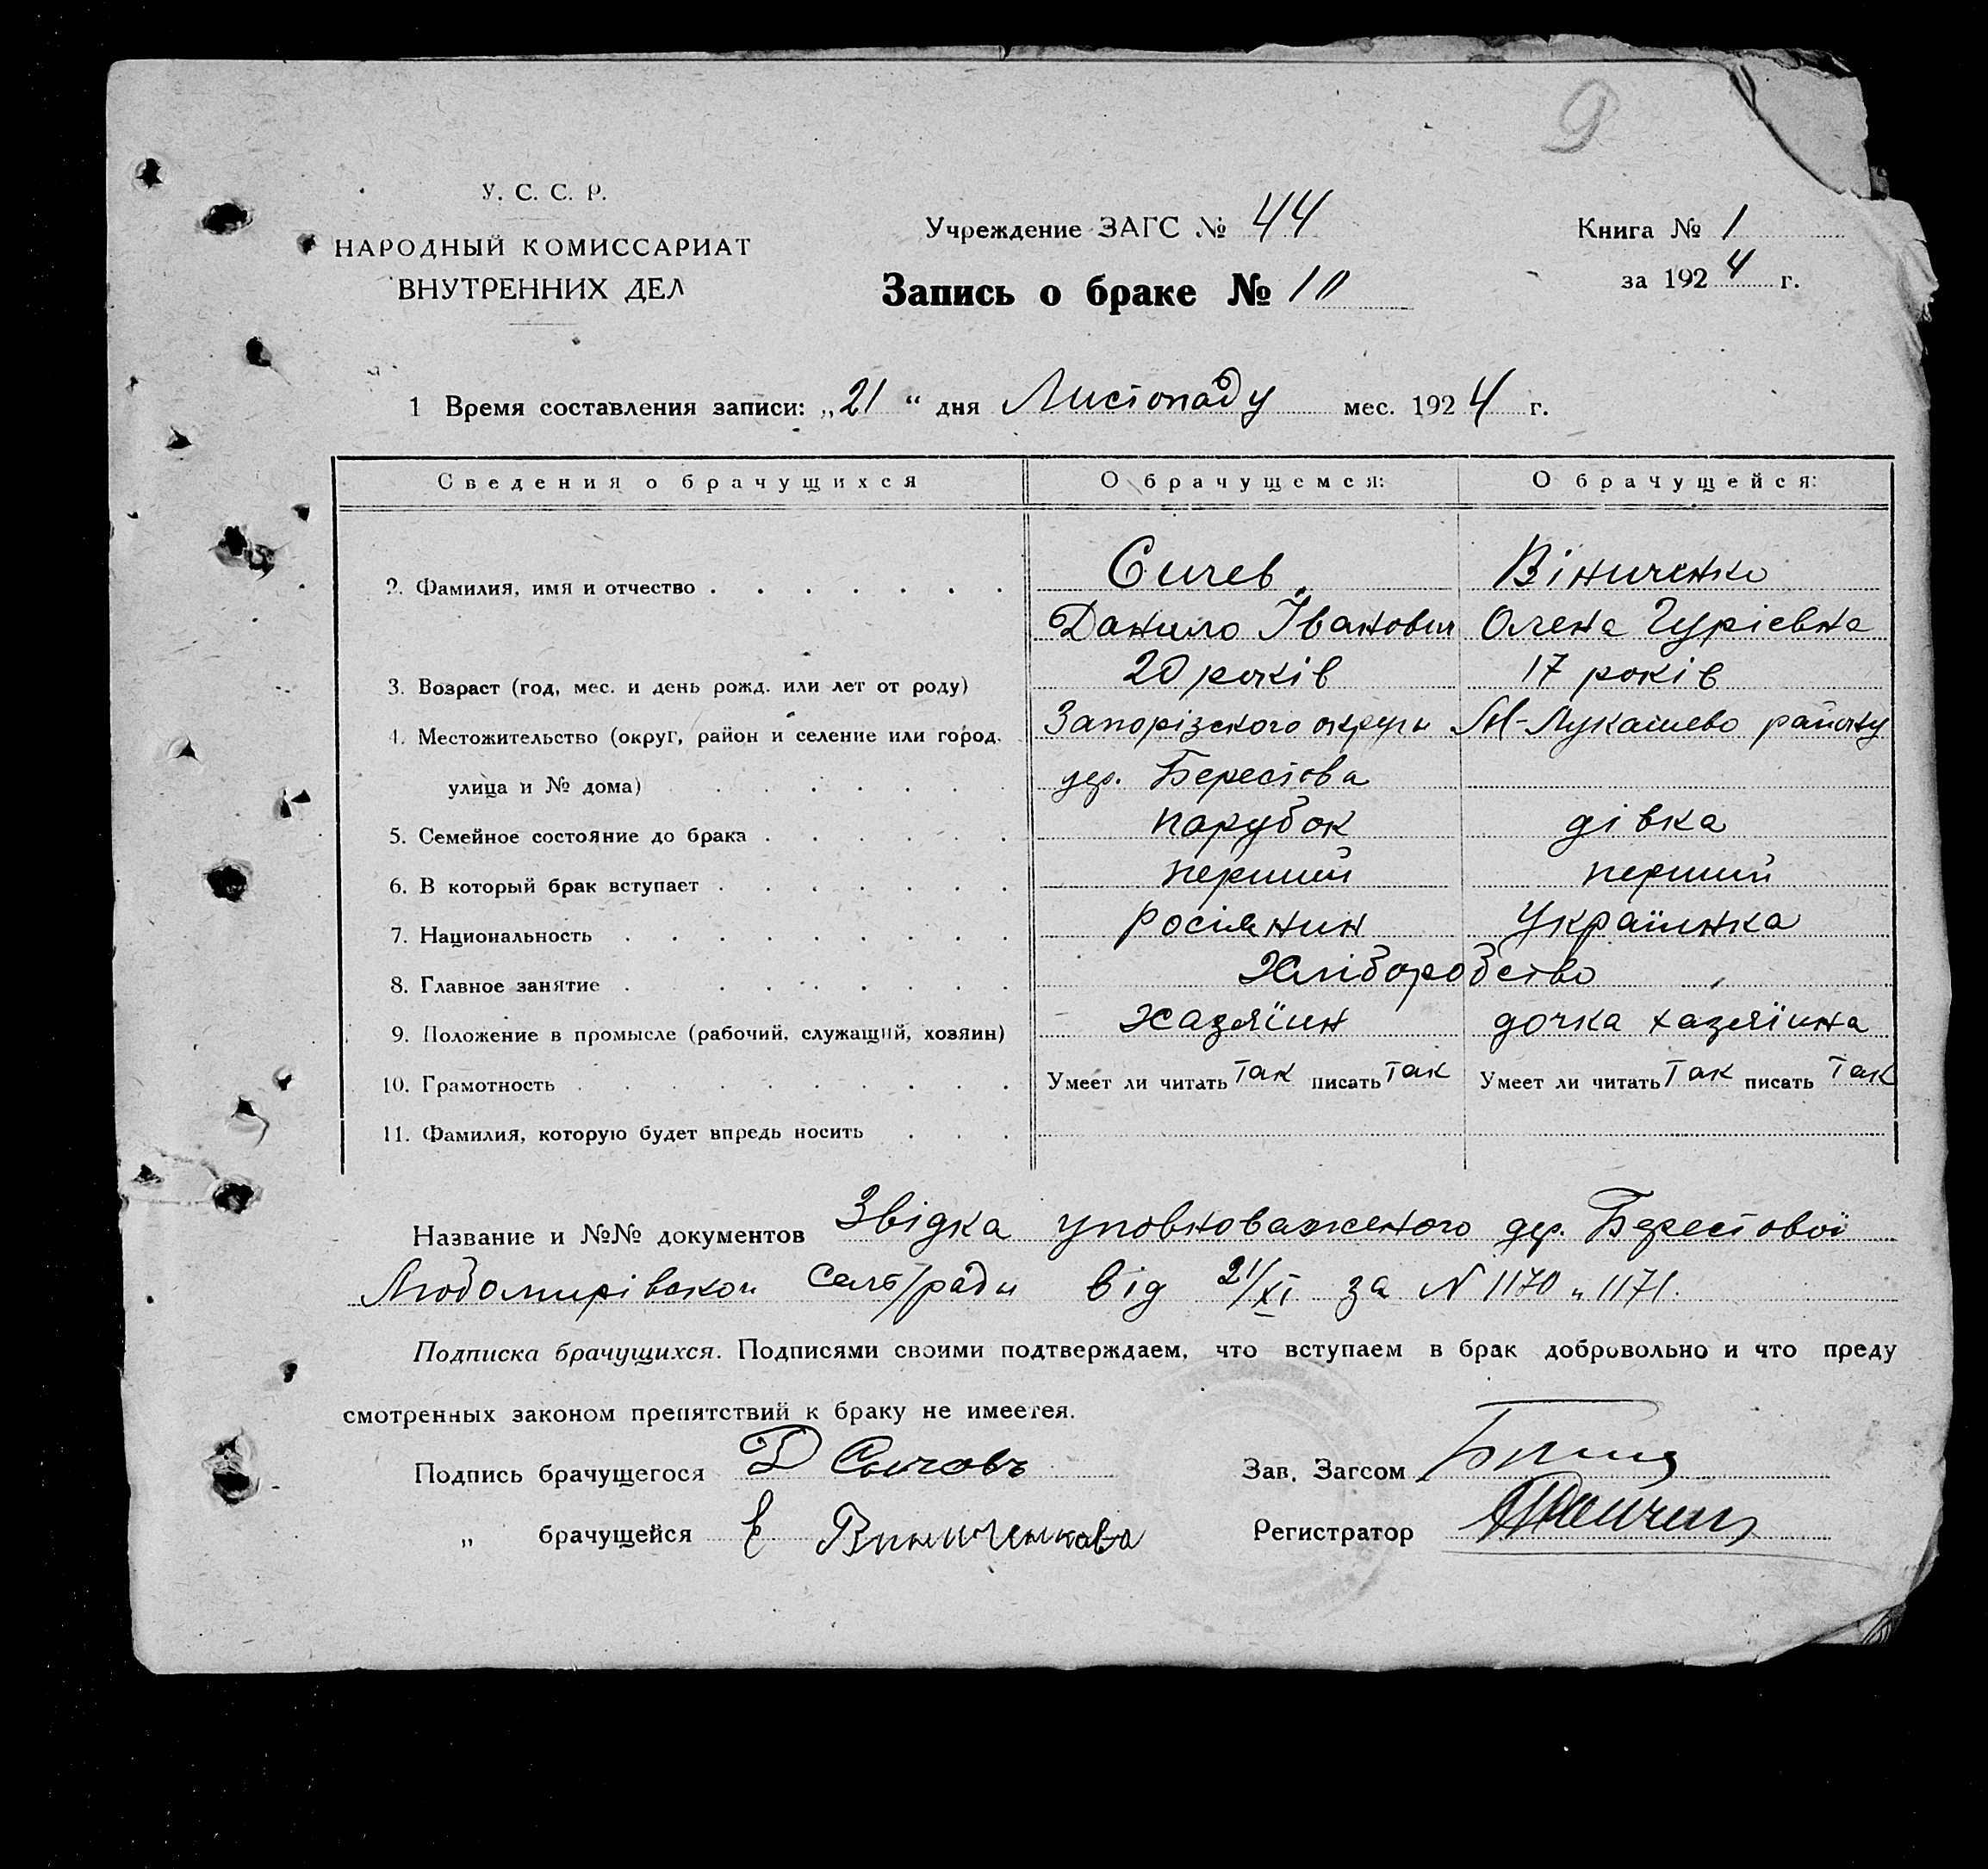 9
У. С. С. Р.
НАРОДНЫЙ КОМИССАРИАТ
ВНУТРЕННИХ ДЕЛ
Учреждение ЗАГС № 44
Запись о браке № 10
Книга № 1
за 1924 г.
1 Время составления записи: „21“ дня Листопаду мес. 1924 г.
Сведения о брачущихся О брачущемся: О брачущейся:
2. Фамилия, имя и отчество Сичев Вініченко
Данило Іванович Олена Гуріевна
3. Возраст (год, мес. и день рожд. или лет от роду) 20 років 17 років
4. Местожительство (округ, район и селение или город, Запорізского округи М-Лукашево району
улица и № дома) дер. Берестова
5. Семейное состояние до брака парубок дівка
6. В который брак вступает перший перший
7. Национальность росіянин Українка
8. Главное занятие Хліборобство
9. Положение в промысле (рабочий, служащий, хозяин) хазяїин дочка хазяїина
10. Грамотность Умеет ли читать так писать так Умеет ли читать так писать так
11. Фамилия, которую будет впредь носить
Название и №№ документов Звідка уповноваженого дер. Берестової
Любомирівскои сель/ради від 21/XI за N 1170 и 1171.
Подписка брачущихся. Подписями своими подтверждаем, что вступаем в брак добровольно и что преду
смотренных законом препятствий к браку не имеется.
Подпись брачущегося Д Сычовъ Зав. Загсом
„ брачущейся Е Виниченкова Регистратор